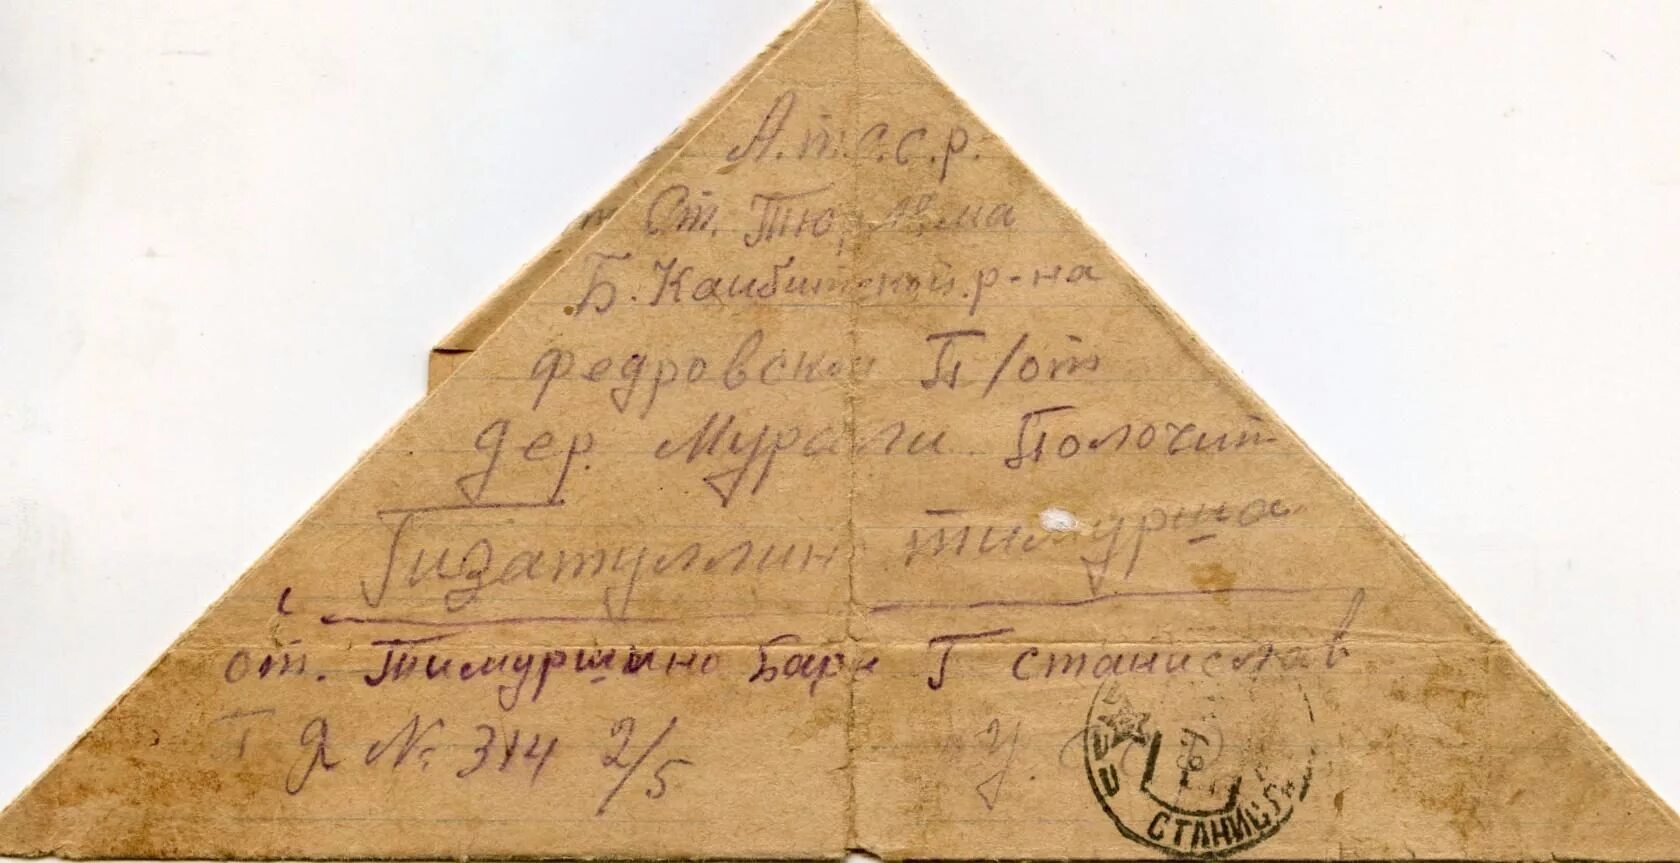 А.т.с.с.р.
Ст. Тюрлема
Б. Каибитской р-на
Федровской П/от
дер. Мурали Полочит
Гизатуллин тимурша
от. Тимуршино Бари Г станислав
Г Д № 314 2/5 У.
СТАНИСЛ